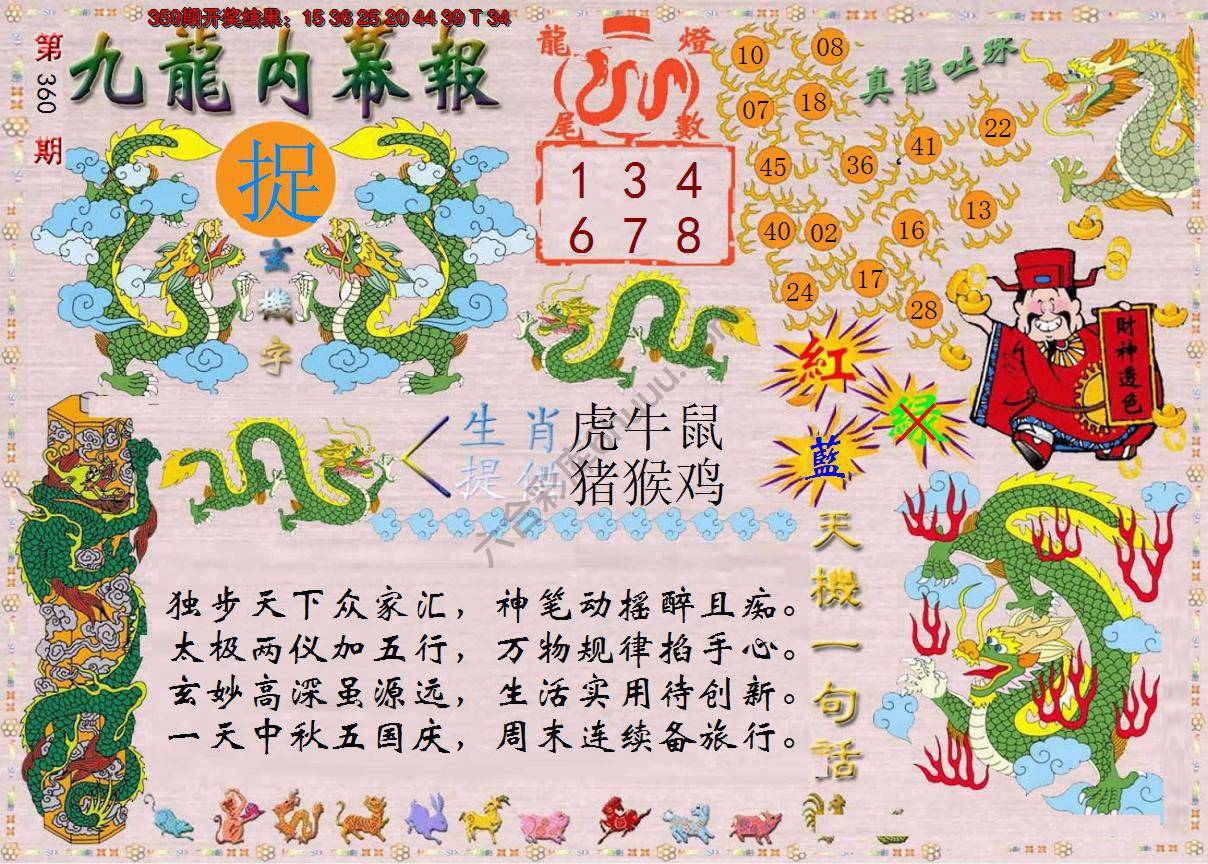 359期开奖结果：15 36 25 20 44 39 T 34
第360期
九龍内幕報
捉
玄機字
龍燈
尾數
1 3 4
6 7 8
真龍吐珠
10 08
07 18
45 36 41 22
40 02 16 13
24 17 28
財神透色
紅
綠
藍
生肖
提供
虎牛鼠
猪猴鸡
天機一句话
独步天下众家汇，神笔动摇醉且痴。
太极两仪加五行，万物规律掐手心。
玄妙高深虽源远，生活实用待创新。
一天中秋五国庆，周末连续备旅行。